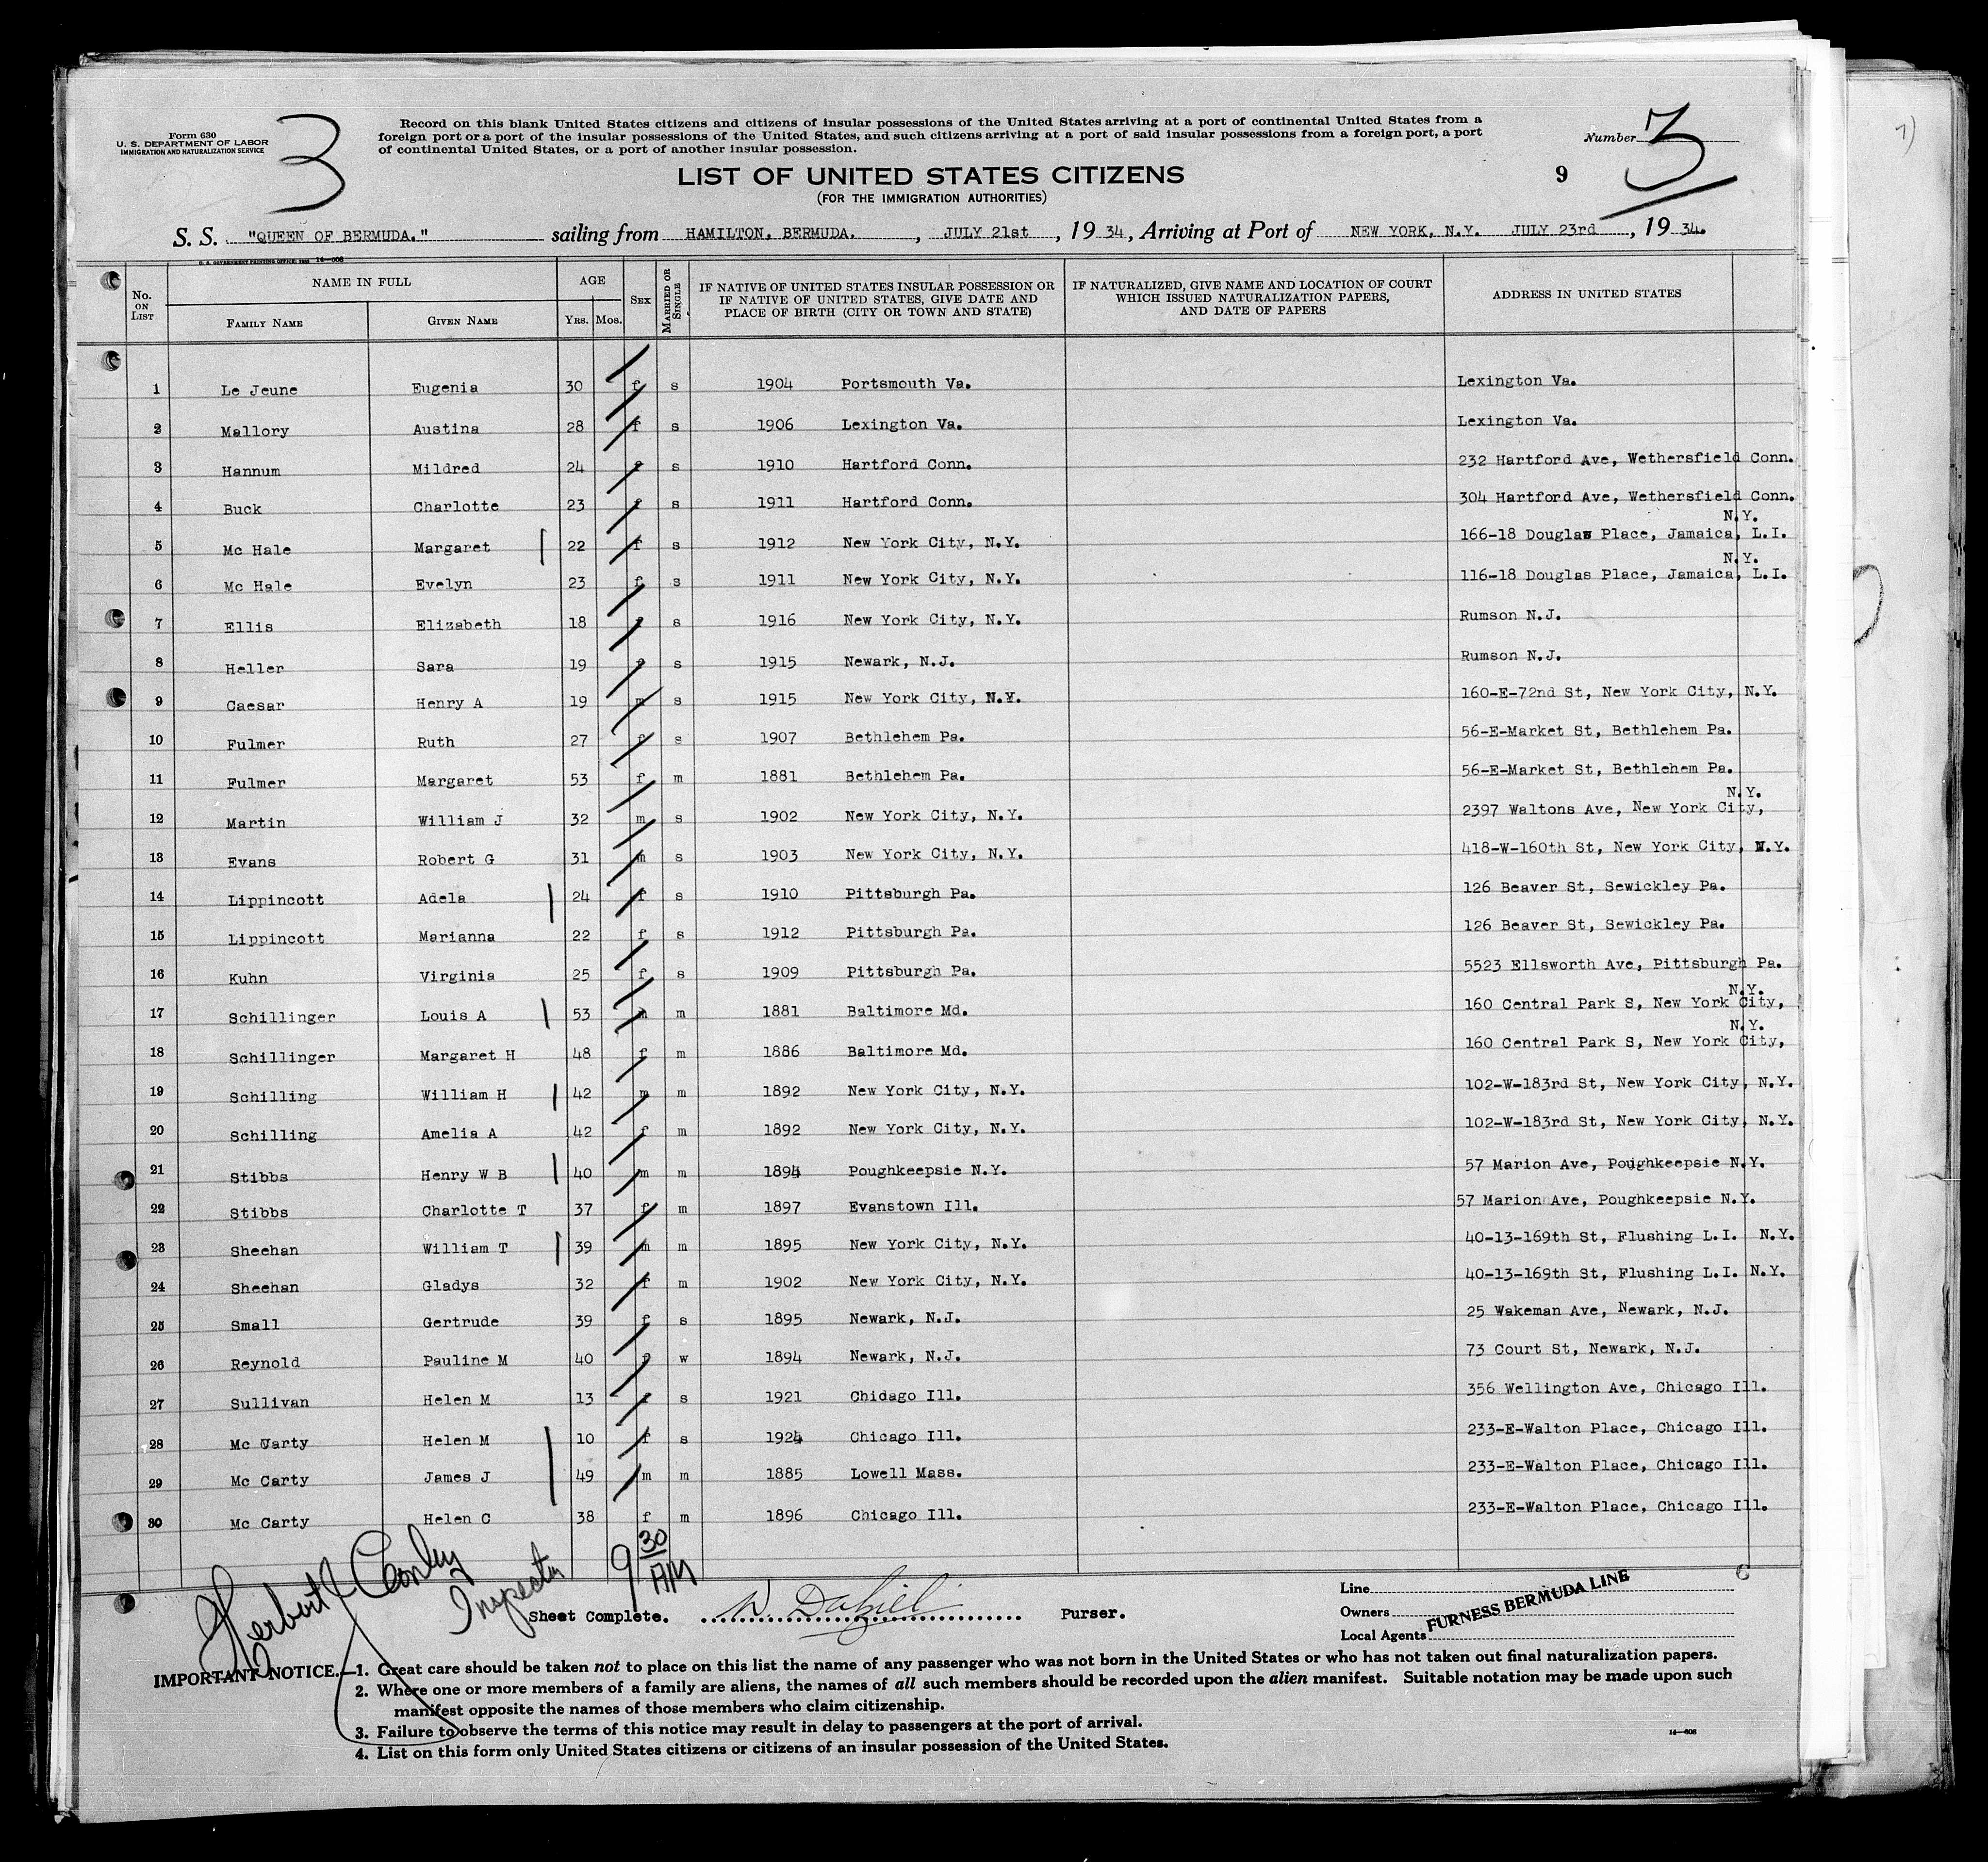 Form 630
U. S. DEPARTMENT OF LABOR
IMMIGRATION AND NATURALIZATION SERVICE
3
Record on this blank United States citizens and citizens of insular possessions of the United States arriving at a port of continental United States from a
foreign port or a port of the insular possessions of the United States, and such citizens arriving at a port of said insular possessions from a foreign port, a port
of continental United States, or a port of another insular possession.
Number 3
LIST OF UNITED STATES CITIZENS
(FOR THE IMMIGRATION AUTHORITIES)
9
S. S. "QUEEN OF BERMUDA." sailing from HAMILTON, BERMUDA., JULY 21st, 19 34, Arriving at Port of NEW YORK, N.Y. JULY 23rd, 19 34.
U. S. GOVERNMENT PRINTING OFFICE 14—608
No. ON LIST
NAME IN FULL
FAMILY NAME GIVEN NAME
AGE
YRS. MOS.
SEX
MARRIED OR SINGLE
IF NATIVE OF UNITED STATES INSULAR POSSESSION OR
IF NATIVE OF UNITED STATES, GIVE DATE AND
PLACE OF BIRTH (CITY OR TOWN AND STATE)
IF NATURALIZED, GIVE NAME AND LOCATION OF COURT
WHICH ISSUED NATURALIZATION PAPERS,
AND DATE OF PAPERS
ADDRESS IN UNITED STATES
1 Le Jeune Eugenia 30 f s 1904 Portsmouth Va. Lexington Va.
2 Mallory Austina 28 f s 1906 Lexington Va. Lexington Va.
3 Hannum Mildred 24 f s 1910 Hartford Conn. 232 Hartford Ave, Wethersfield Conn.
4 Buck Charlotte 23 f s 1911 Hartford Conn. 304 Hartford Ave, Wethersfield Conn.
N.Y.
5 Mc Hale Margaret 22 f s 1912 New York City, N.Y. 166-18 Douglas Place, Jamaica, L.I.
N.Y.
6 Mc Hale Evelyn 23 f s 1911 New York City, N.Y. 116-18 Douglas Place, Jamaica, L.I.
7 Ellis Elizabeth 18 f s 1916 New York City, N.Y. Rumson N.J.
8 Heller Sara 19 f s 1915 Newark, N.J. Rumson N.J.
9 Caesar Henry A 19 m s 1915 New York City, N.Y. 160-E-72nd St, New York City, N.Y.
10 Fulmer Ruth 27 f s 1907 Bethlehem Pa. 56-E-Market St, Bethlehem Pa.
11 Fulmer Margaret 53 f m 1881 Bethlehem Pa. 56-E-Market St, Bethlehem Pa.
N.Y.
12 Martin William J 32 m s 1902 New York City, N.Y. 2397 Waltons Ave, New York City,
13 Evans Robert G 31 m s 1903 New York City, N.Y. 418-W-160th St, New York City, N.Y.
14 Lippincott Adela 24 f s 1910 Pittsburgh Pa. 126 Beaver St, Sewickley Pa.
15 Lippincott Marianna 22 f s 1912 Pittsburgh Pa. 126 Beaver St, Sewickley Pa.
16 Kuhn Virginia 25 f s 1909 Pittsburgh Pa. 5523 Ellsworth Ave, Pittsburgh Pa.
N.Y.
17 Schillinger Louis A 53 m m 1881 Baltimore Md. 160 Central Park S, New York City,
N.Y.
18 Schillinger Margaret H 48 f m 1886 Baltimore Md. 160 Central Park S, New York City,
19 Schilling William H 42 m m 1892 New York City, N.Y. 102-W-183rd St, New York City, N.Y.
20 Schilling Amelia A 42 f m 1892 New York City, N.Y. 102-W-183rd St, New York City, N.Y.
21 Stibbs Henry W B 40 m m 1894 Poughkeepsie N.Y. 57 Marion Ave, Poughkeepsie N.Y.
22 Stibbs Charlotte T 37 f m 1897 Evanstown Ill. 57 Marion Ave, Poughkeepsie N.Y.
23 Sheehan William T 39 m m 1895 New York City, N.Y. 40-13-169th St, Flushing L.I. N.Y.
24 Sheehan Gladys 32 f m 1902 New York City, N.Y. 40-13-169th St, Flushing L.I. N.Y.
25 Small Gertrude 39 f s 1895 Newark, N.J. 25 Wakeman Ave, Newark, N.J.
26 Reynold Pauline M 40 f w 1894 Newark, N.J. 73 Court St, Newark, N.J.
27 Sullivan Helen M 13 f s 1921 Chicago Ill. 356 Wellington Ave, Chicago Ill.
28 Mc Carty Helen M 10 f s 1924 Chicago Ill. 233-E-Walton Place, Chicago Ill.
29 Mc Carty James J 49 m m 1885 Lowell Mass. 233-E-Walton Place, Chicago Ill.
30 Mc Carty Helen C 38 f m 1896 Chicago Ill. 233-E-Walton Place, Chicago Ill.
Herbert J Conley
Inspector
9 30 AM
Sheet Complete. W. Dalziel Purser.
Line
Owners FURNESS BERMUDA LINE
Local Agents
IMPORTANT NOTICE.—1. Great care should be taken not to place on this list the name of any passenger who was not born in the United States or who has not taken out final naturalization papers.
2. Where one or more members of a family are aliens, the names of all such members should be recorded upon the alien manifest. Suitable notation may be made upon such
manifest opposite the names of those members who claim citizenship.
3. Failure to observe the terms of this notice may result in delay to passengers at the port of arrival.
14—608
4. List on this form only United States citizens or citizens of an insular possession of the United States.